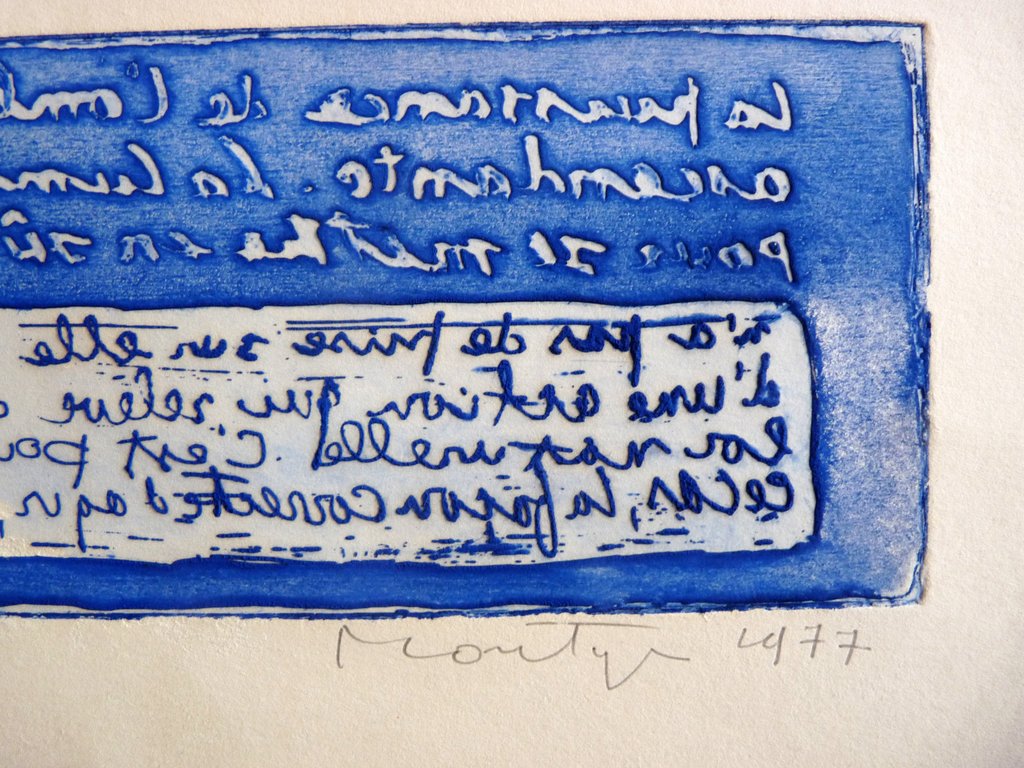 la puissance de l'omb
ascendante. La lumi
pour se mettre en sû
n'a pas de prise sur elle
d'une action qui relève
loi naturelle. C'est pou
ce cas, la façon correcte d'agir
1977